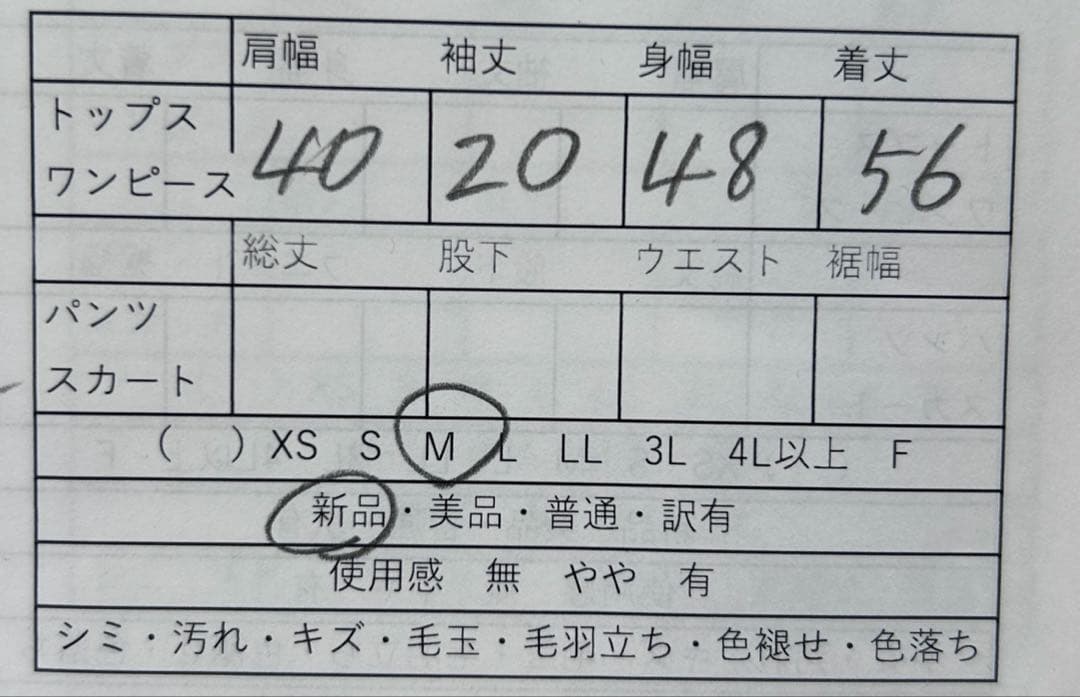 肩幅 袖丈 身幅 着丈
トップス
ワンピース 40 20 48 56
総丈 股下 ウエスト 裾幅
パンツ
スカート
( ) XS S M L LL 3L 4L以上 F
新品・美品・普通・訳有
使用感 無 やや 有
シミ・汚れ・キズ・毛玉・毛羽立ち・色褪せ・色落ち